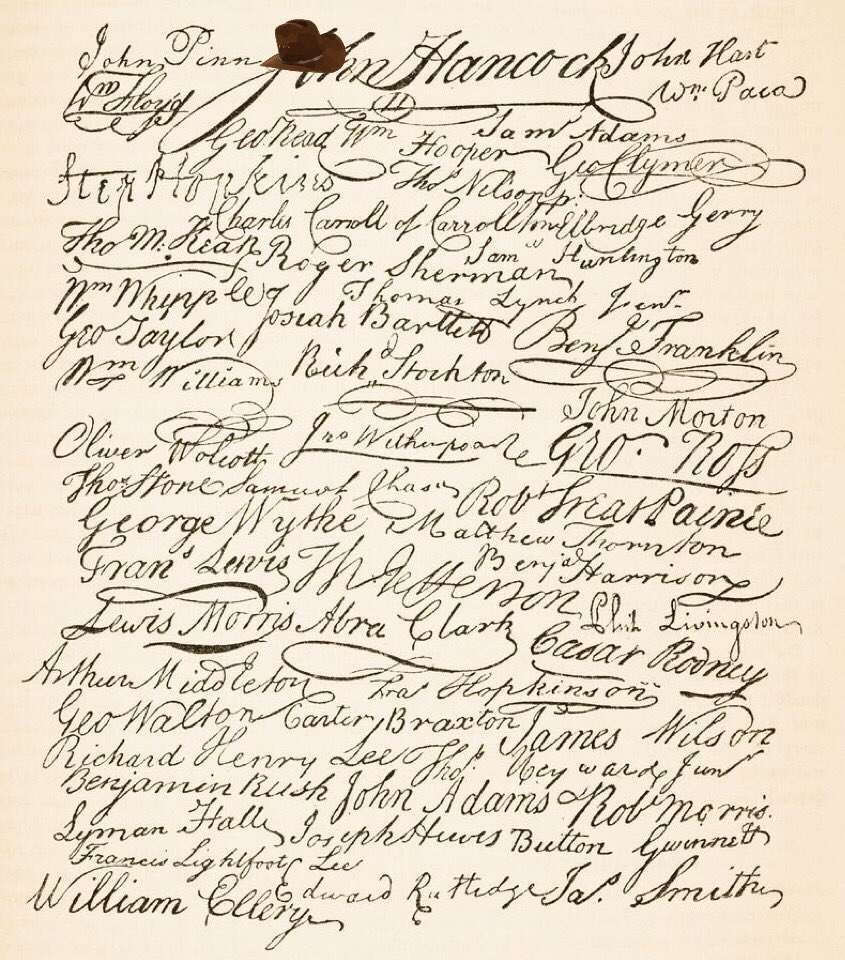 John Pinn John Hancock John Hart
Wm Floyd Wm. Paca
Geo Read Wm Hooper Sam Adams
Geo Clymer
Step Hopkins Thos Nelson jr.
Charles Carroll of Carrollton Elbridge Gerry
Tho M. Kean Roger Sherman Sam Huntington
Wm Whipple Thomas Lynch Junr.
Geo Taylor Josiah Bartlett Benj Franklin
Wm Williams Richd Stockton
John Morton
Oliver Wolcott Jno Witherspoon Geo. Ross
Thos Stone Samuel Chase Robt Treat Paine
George Wythe Matthew Thornton
Frans Lewis Th Jefferson Benja Harrison
Lewis Morris Abra Clark Phil Livingston
Casar Rodney
Arthur Middleton Fras Hopkinson
Geo Walton Carter Braxton James Wilson
Richard Henry Lee Thos. Heyward Junr
Benjamin Rush John Adams Robt Morris.
Lyman Hall Joseph Hewes Button Gwinnett
Francis Lightfoot Lee
William Ellery Edward Rutledge Jas. Smith